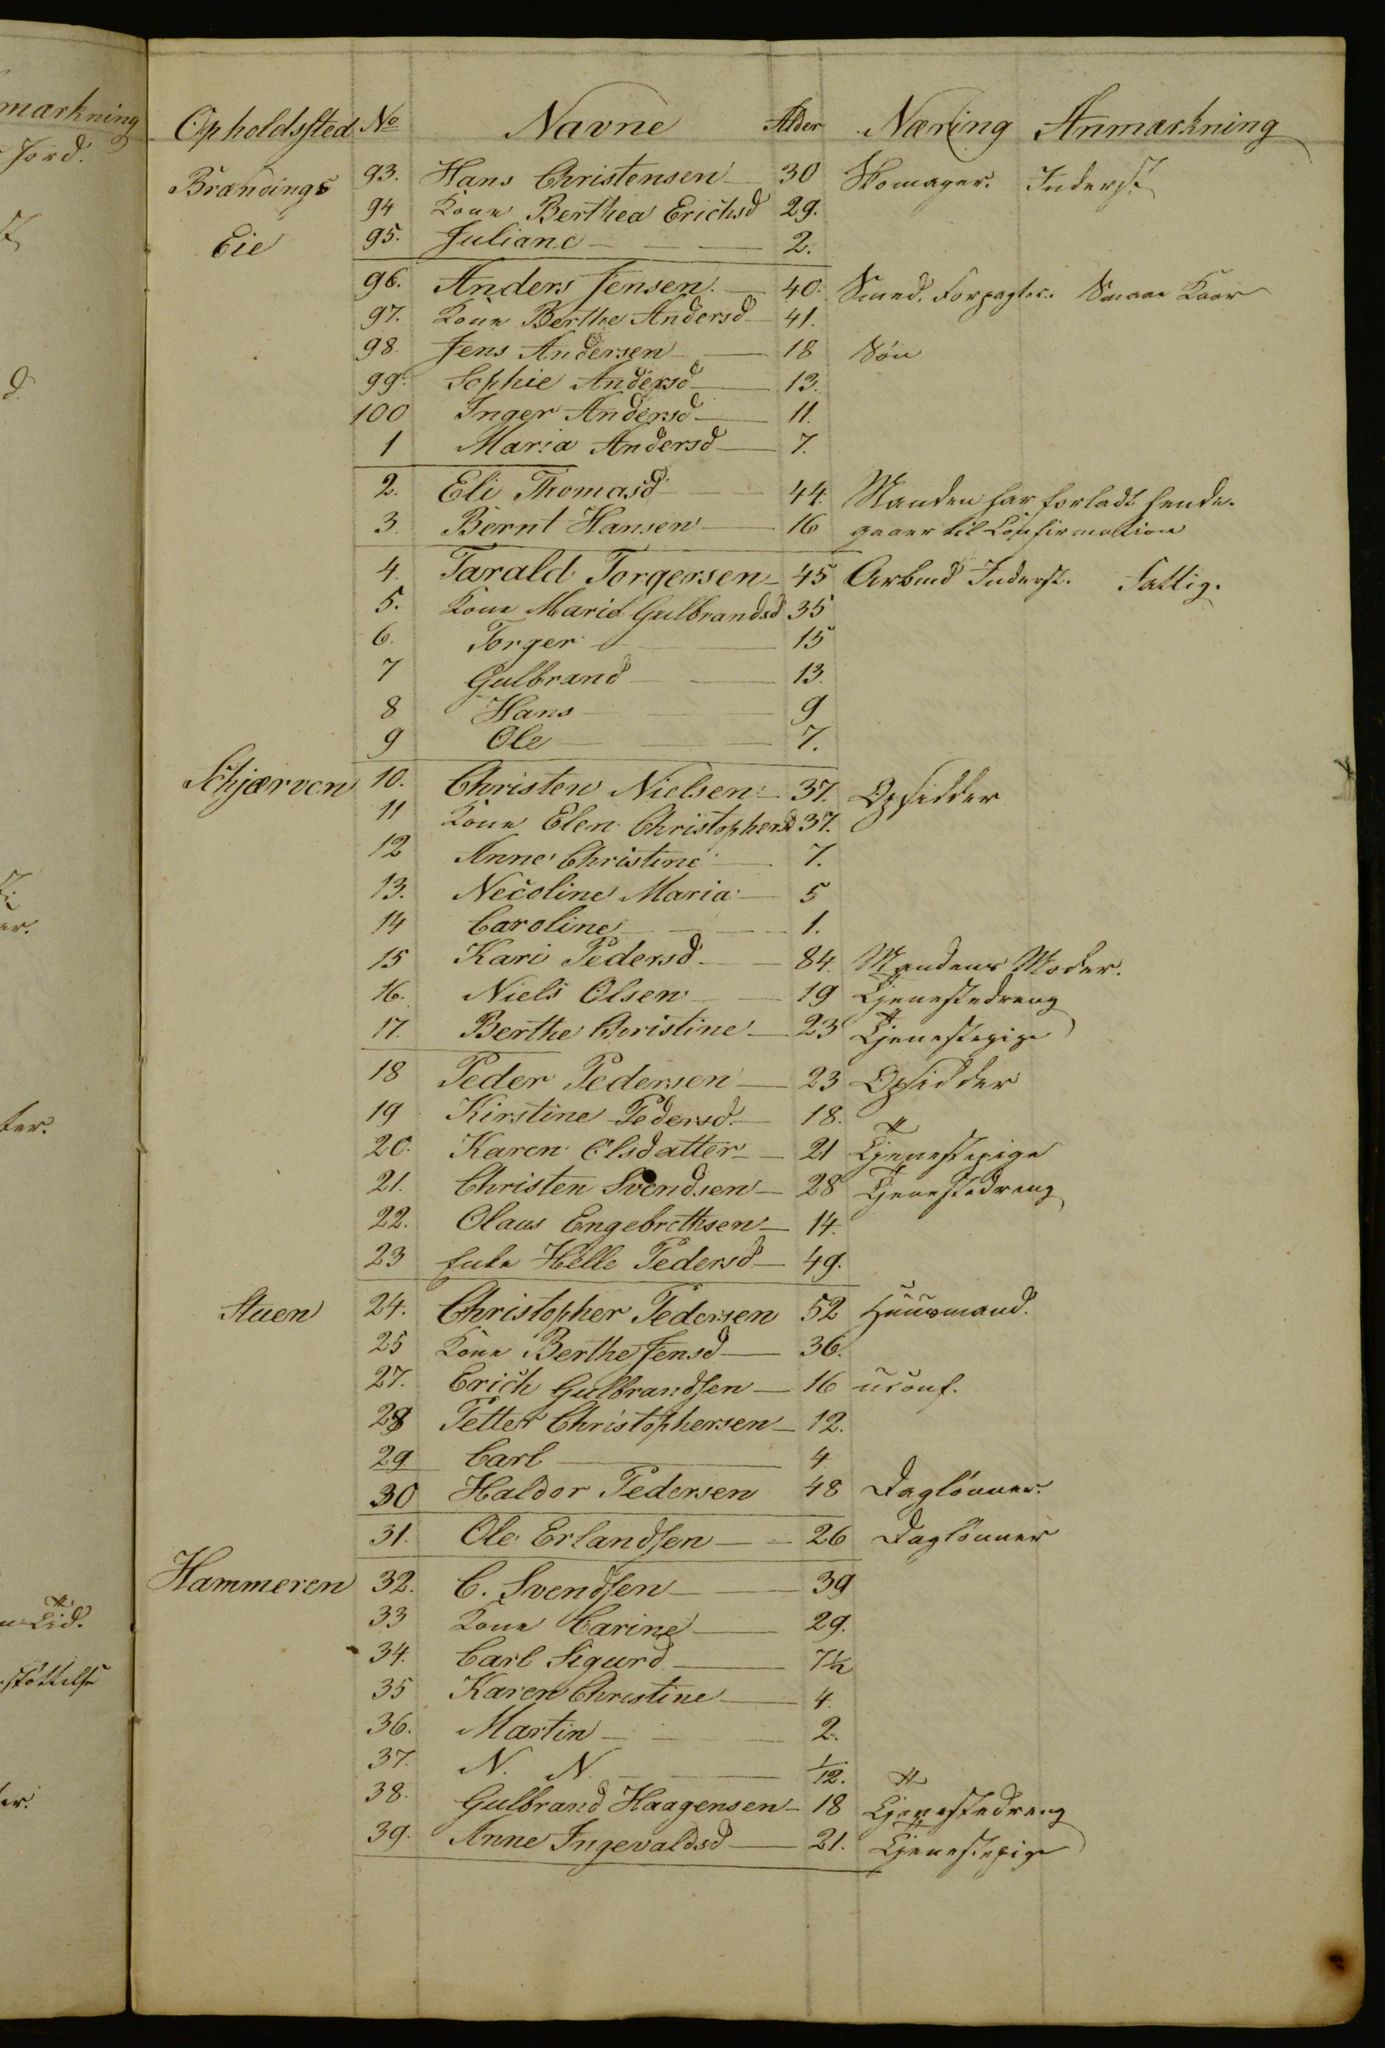 markning
Jord.
Opholdssted No Navne Alder Næring Anmærkning
Brændings 93. Hans Christensen 30 Skomager. Inderst
94 Kone Berthea Erichsd 29.
Eie 95. Juliane 2.
96. Anders Jensen 40. Smed. Forpagter. Smaae Kaar
97. Kone Berthe Andersd 41.
98. Jens Andersen 18 Søn
99. Sophie Andersd 13.
100 Inger Andersd 11.
1 Maria Andersd 7.
2. Eli Thomasd 44. Manden har forladt hende.
3. Bernt Hansen 16 gaaer til Confirmation
4. Tarald Torgersen 45 Arbmd Inderst. Fattig.
5. Kone Marie Gulbrandsd 35
6. Torger 15
7 Gulbrand 13.
8 Hans 9
9 Ole 7.
Schjærven 10. Christen Nielsen 37. Opsidder
11 Kone Elen Christophersd 37.
12 Anne Christine 7.
13. Necoline Maria 5
14 Caroline 1.
15 Kari Pedersd 84. Mandens Moder.
16. Niels Olsen 19 Tjenestedreng
17. Berthe Christine 23 Tjenestepige
18 Peder Pedersen 23 Opsidder
19 Kirstine Pedersd. 18.
20. Karen Olsdatter 21 Tjenestepige
21. Christen Svendsen 28 Tjenestedreng
22. Olaus Engebrethsen 14.
23 Enke Helle Pedersd 49.
Stuen 24. Christopher Pedersen 52 Huusmand.
25 Kone Berthe Jensd 36.
27. Erich Gulbrandsen 16 uconf.
28 Petter Christophersen 12.
29 Carl 4
30 Haldor Pedersen 48 Daglønner.
31. Ole Erlandsen 26 Daglønner
Hammeren 32. C. Svendsen 39
33 Kone Carine 29.
34. Carl Sigurd 7½
35 Karen Christine 4.
36. Martin 2.
37. N. N. 1/12.
38. Gulbrand Haagensen 18 Tjenestedreng
39. Anne Ingevaldsd 21. Tjenestepige